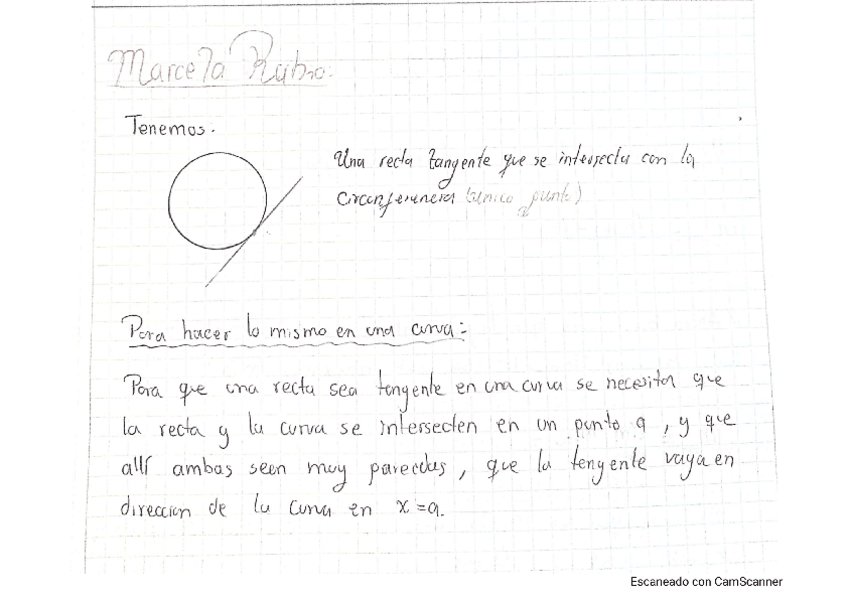 Marcela Rubio.
Tenemos.
Una recta tangente que se intersecta con la
circunferencia (unico punto)
Para hacer lo mismo en una curva:
Para que una recta sea tangente en una curva se necesita que
la recta y la curva se intersecten en un punto a, y que
allí ambas sean muy parecidas, que la tangente vaya en
direccion de la curva en x=a.
Escaneado con CamScanner